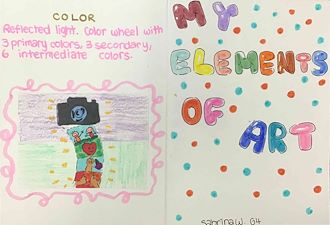 COLOR
Reflected light. Color wheel with
3 primary colors, 3 secondary,
6 intermediate colors.
MY
ELEMENTS
OF
ART
Sabrina W. G4